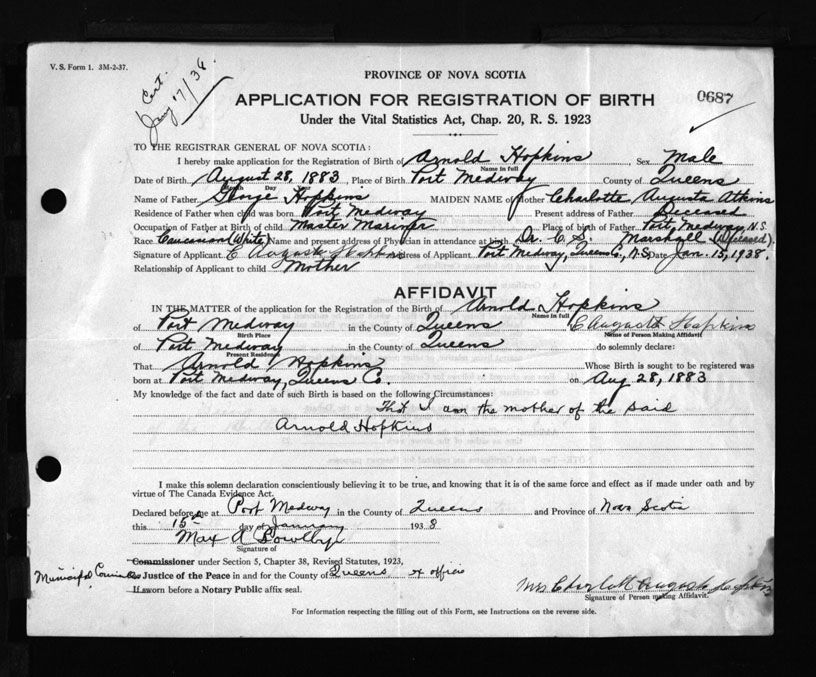 V. S. Form 1. 3M-2-37.
Cert. Jany 17/38
PROVINCE OF NOVA SCOTIA
APPLICATION FOR REGISTRATION OF BIRTH
0687
Under the Vital Statistics Act, Chap. 20, R. S. 1923
TO THE REGISTRAR GENERAL OF NOVA SCOTIA:
I hereby make application for the Registration of Birth of Arnold Hopkins, Sex Male
Name in full
Date of Birth August 28, 1883, Place of Birth Port Medway County of Queens
Month Day
Name of Father George Hopkins MAIDEN NAME of Mother Charlotte Augusta Atkins
Residence of Father when child was born Port Medway Present address of Father Deceased
Occupation of Father at Birth of child Master Mariner Place of birth of Father Port Medway, N.S.
Race Caucasian (White) Name and present address of Physician in attendance at birth Dr. C. S. Marshall (Deceased).
Signature of Applicant C Augusta Hopkins Address of Applicant Port Medway, Queens Co., N.S. Date Jan. 15, 1938.
Relationship of Applicant to child Mother
AFFIDAVIT
IN THE MATTER of the application for the Registration of the Birth of Arnold Hopkins
Name in full
of Port Medway in the County of Queens C Augusta Hopkins
Birth Place Name of Person Making Affidavit
of Port Medway in the County of Queens do solemnly declare:
Present Residence
That Arnold Hopkins Whose Birth is sought to be registered was
born at Port Medway, Queens Co. on Aug 28, 1883
My knowledge of the fact and date of such Birth is based on the following Circumstances:
That I am the mother of the said
Arnold Hopkins
I make this solemn declaration conscientiously believing it to be true, and knowing that it is of the same force and effect as if made under oath and by
virtue of The Canada Evidence Act.
Declared before me at Port Medway in the County of Queens and Province of Nova Scotia
this 15th day of January 1938
Max A Bowlby
Signature of
Commissioner under Section 5, Chapter 38, Revised Statutes, 1923,
Municipal a Justice of the Peace in and for the County of Queens ex officio
If sworn before a Notary Public affix seal.
Mrs Charlotte Augusta Hopkins
Signature of Person making Affidavit.
For Information respecting the filling out of this Form, see Instructions on the reverse side.